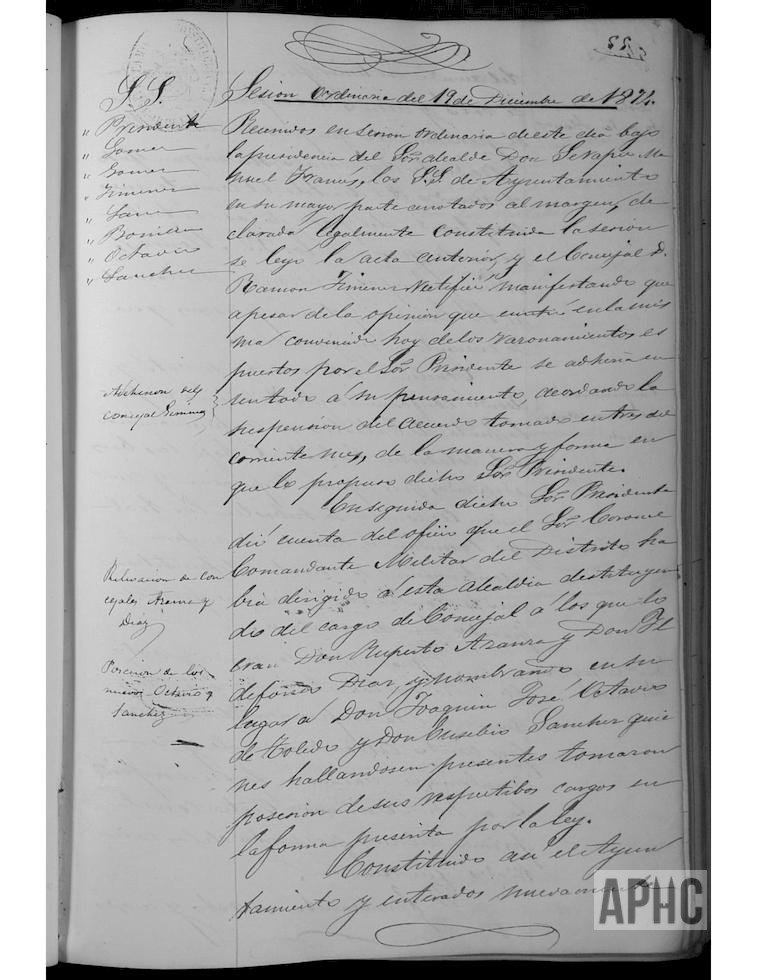 S.S.
" Presidente
" Gomez
" Gomez
" Jimenez
" Sanz
" Octavio
" Sanchez
Sesion Ordinaria del 19 de Diciembre de 1874.
Reunidos en sesion ordinaria de este dia bajo
la presidencia del Sor. Alcalde Don Serapio Ma
nuel Francés, los S.S. de Ayuntamiento
en su mayor parte anotados al margen, de
clarada legalmente constituida la sesion
se leyo la acta anterior, y el Concejal D.
Ramon Jimenez rectificó manifestando que
apesar de la opinion que emitió en la mis
ma convencido hoy de los razonamientos es
puestos por el Sor. Presidente se adheria en
sentado á su pensamiento, acordando la
suspension del acuerdo tomado en tres del
corriente mes, de la manera y forma en
que lo propuso dicho Sor. Presidente.
Adhesion del
concejal Jimenez
Enseguida dicho Sor. Presidente
dió cuenta del oficio que el Sor. Coronel
Comandante Militar del Distrito ha
bia dirigido á esta Alcaldia destituyen
do del cargo de Concejal á los que lo
eran Don Ruperto Azanza y Don Il
defonso Diaz, y nombrando en su
lugar á Don Joaquin José Octavio
de Toledo y Don Eusebio Sanchez quie
nes hallandosen presentes tomaron
posesion de sus respectibos cargos en
la forma prescrita por la ley.
de con
cejales Azanza y
Diaz
Posesion de los
nuevos Octavio y
Sanchez
Constituido asi el Ayun
tamiento y enterados nuevamente
APHC